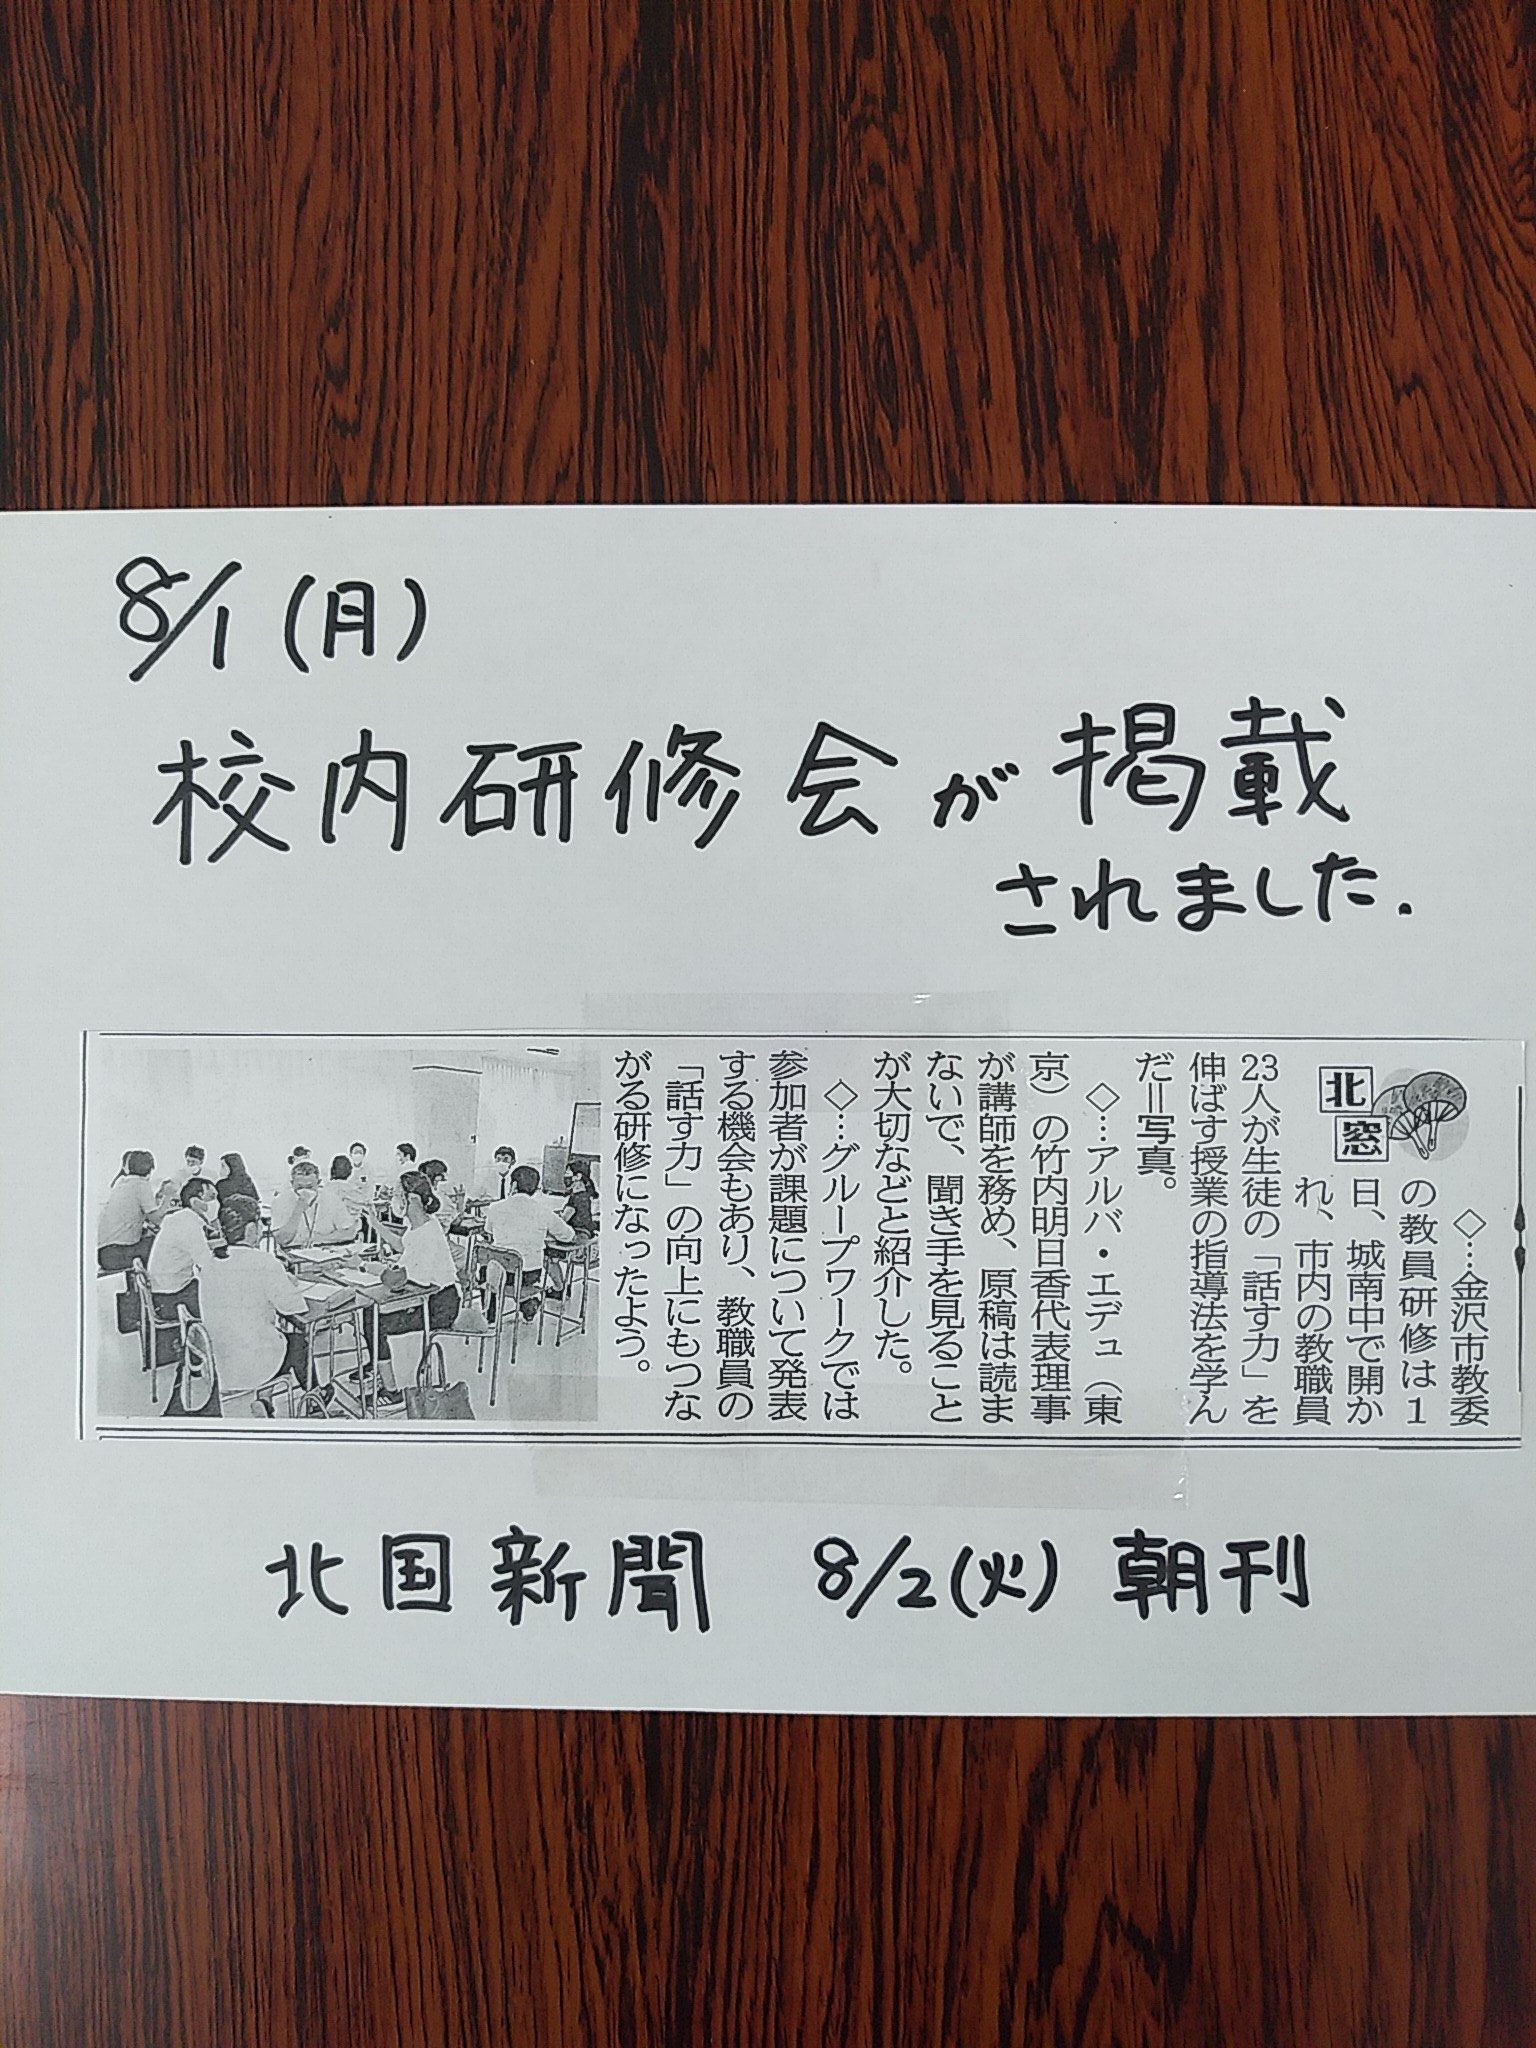 8/1(月)
校内研修会が掲載
されました.
北窓
◇…金沢市教委
の教員研修は1
日、城南中で開か
れ、市内の教職員
23人が生徒の「話す力」を
伸ばす授業の指導法を学ん
だ＝写真。
◇…アルバ・エデュ（東
京）の竹内明日香代表理事
が講師を務め、原稿は読ま
ないで、聞き手を見ること
が大切などと紹介した。
◇…グループワークでは
参加者が課題について発表
する機会もあり、教職員の
「話す力」の向上にもつな
がる研修になったよう。
北国新聞 8/2(火) 朝刊